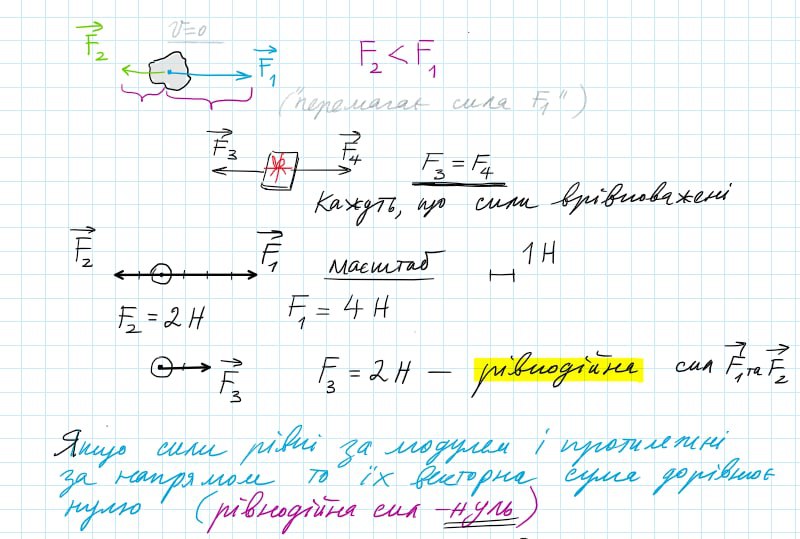 v=0
F₂ F₁ F₂ < F₁
("перемагає сила F₁")
F₃ F₄ F₃ = F₄
Кажуть, що сили врівноважені
F₂ F₁ масштаб 1Н
F₂ = 2Н F₁ = 4Н
F₃ F₃ = 2Н — рівнодійна сил F₁ та F₂
Якщо сили рівні за модулем і протилежні
за напрямом то їх векторна сума дорівнює
нулю (рівнодійна сил – нуль)